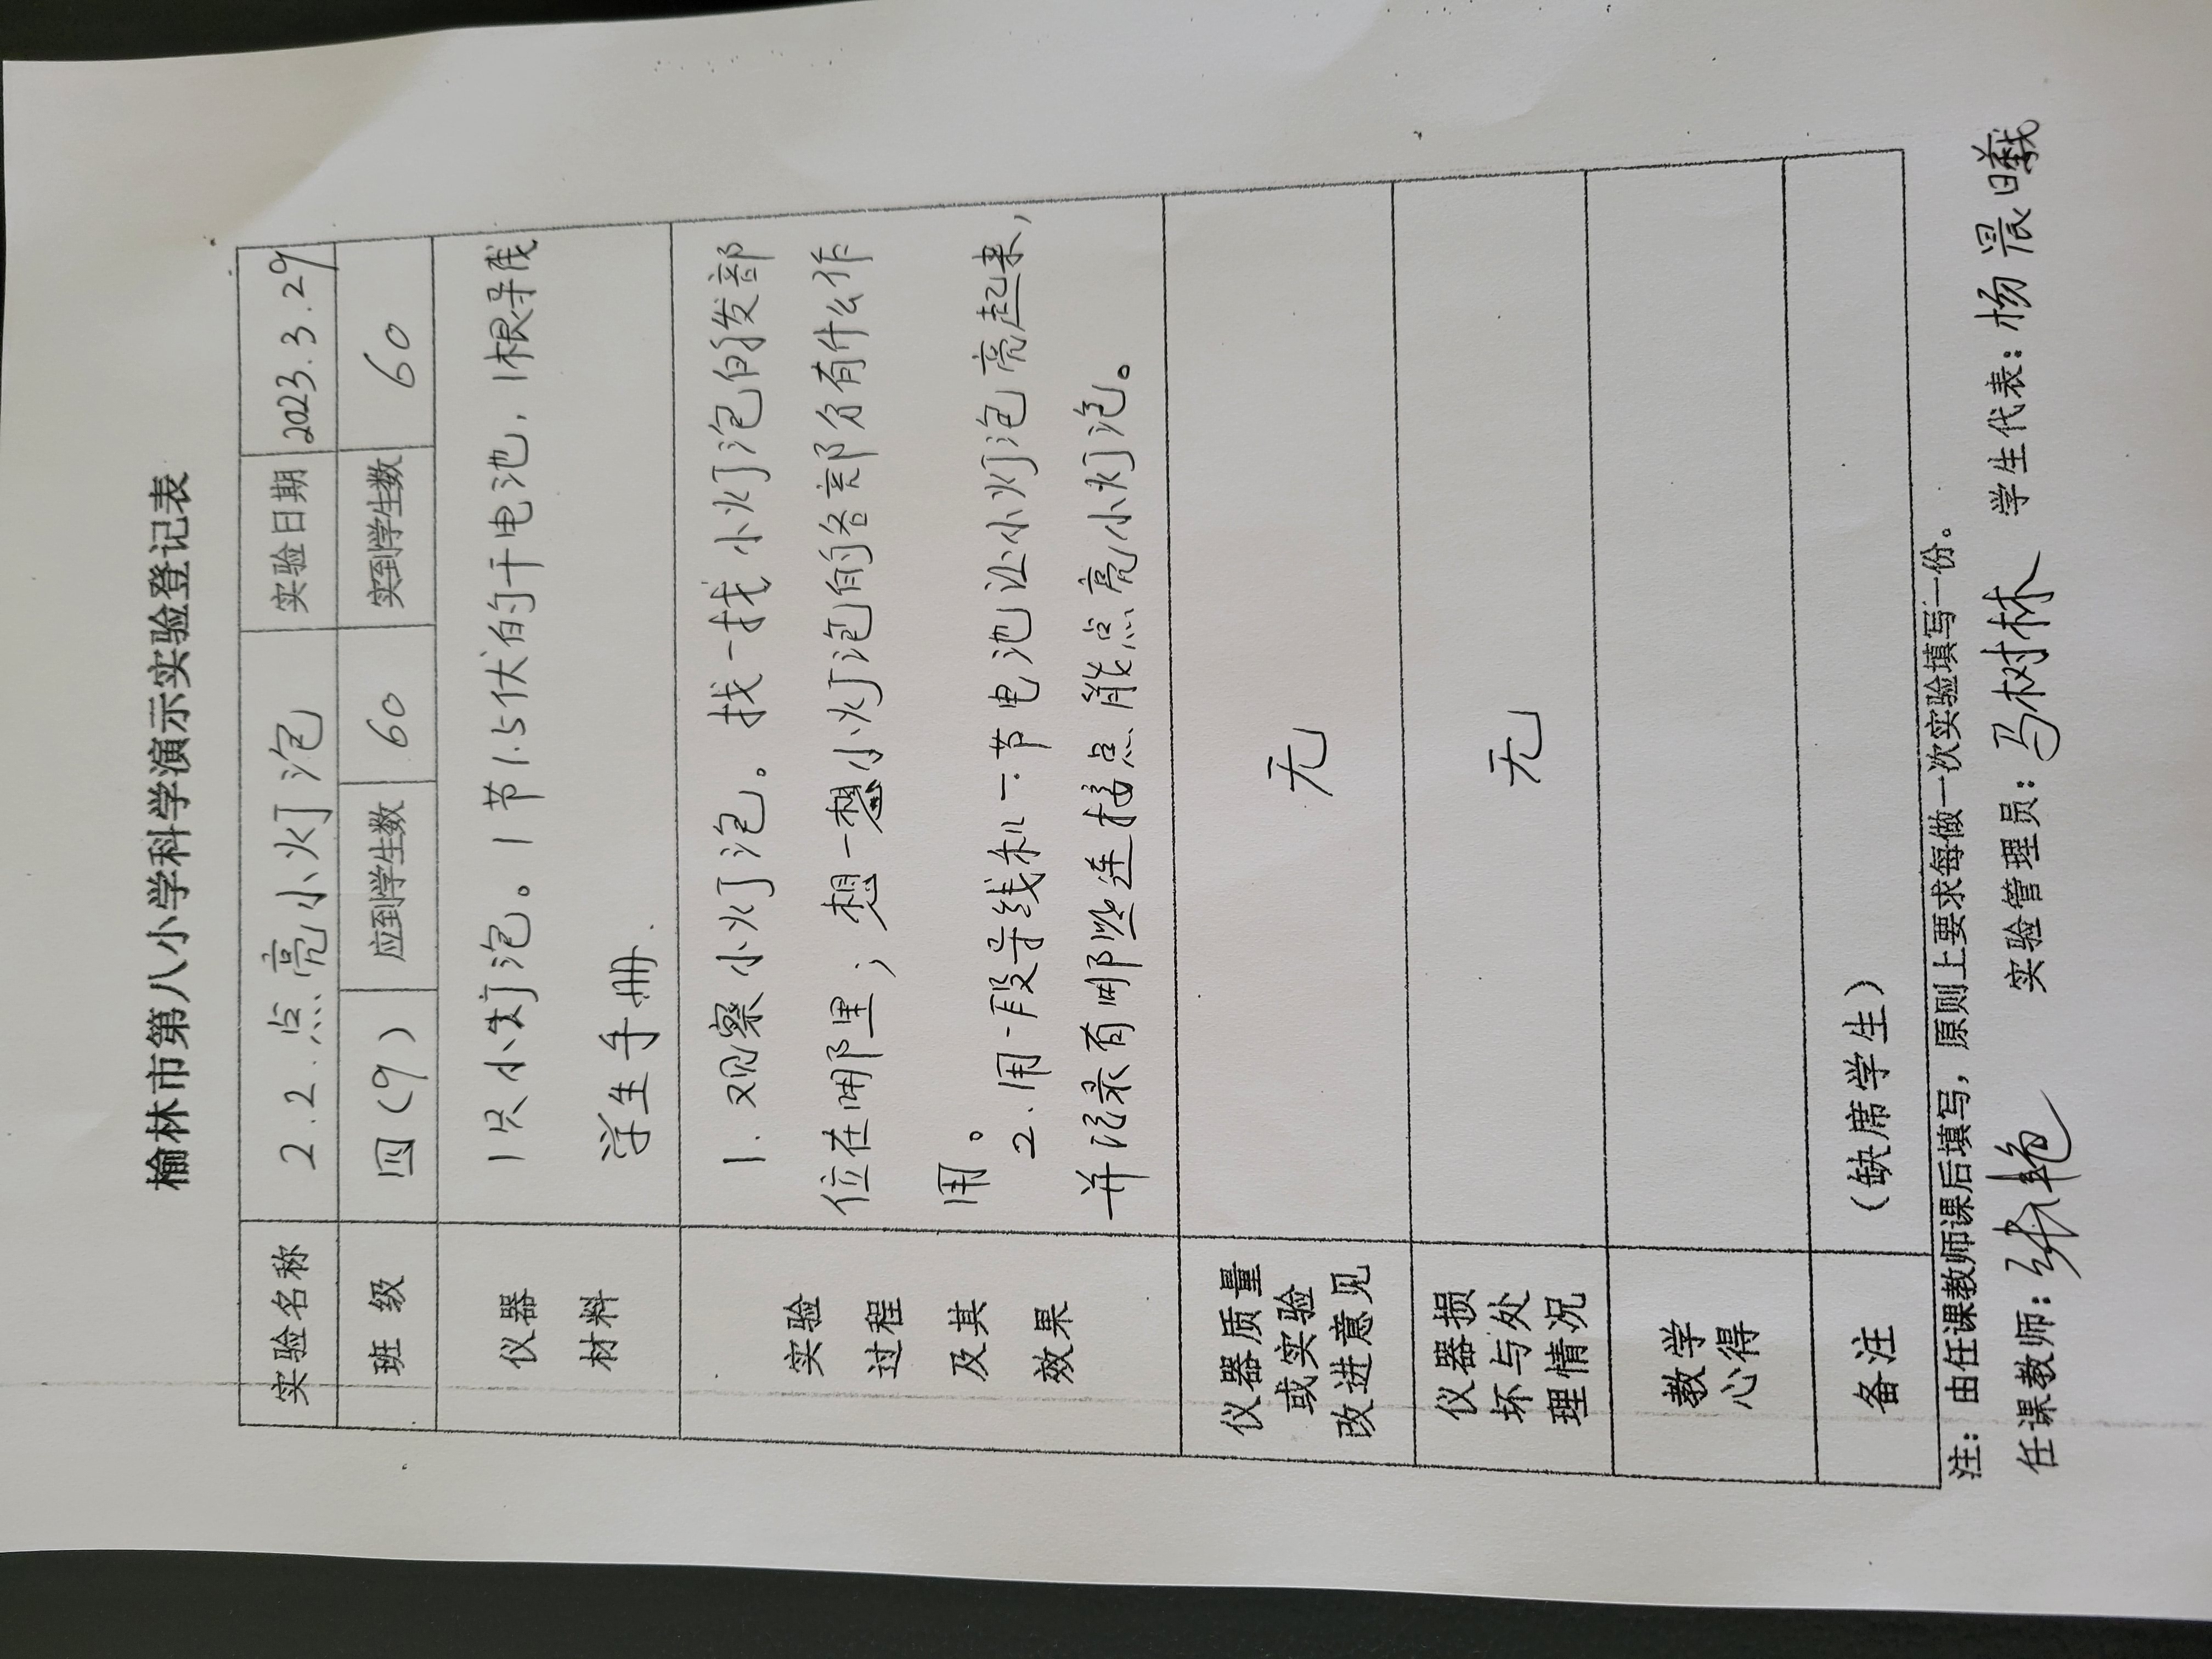 榆林市第八小学科学演示实验登记表
实验名称 2.2.点亮小灯泡 实验日期 2023.3.29
班 级 四(9) 应到学生数 60 实到学生数 60
仪器 1只小灯泡。1节1.5伏的干电池,1根导线
材料 学生手册.
实验 1.观察小灯泡。找一找小灯泡的发部
过程 位在哪里;想一想小灯泡的各部分有什么作
及其 用。2.用一段导线和一节电池让小灯泡亮起来,
效果 并记录有哪些连接点能点亮小灯泡。
仪器质量
或实验 无
改进意见
仪器损
坏与处 无
理情况
教学
心得
备注 (缺席学生)
注:由任课教师课后填写,原则上要求每做一次实验填写一份。
任课教师:张艳 实验管理员:马树林 学生代表:杨晨曦